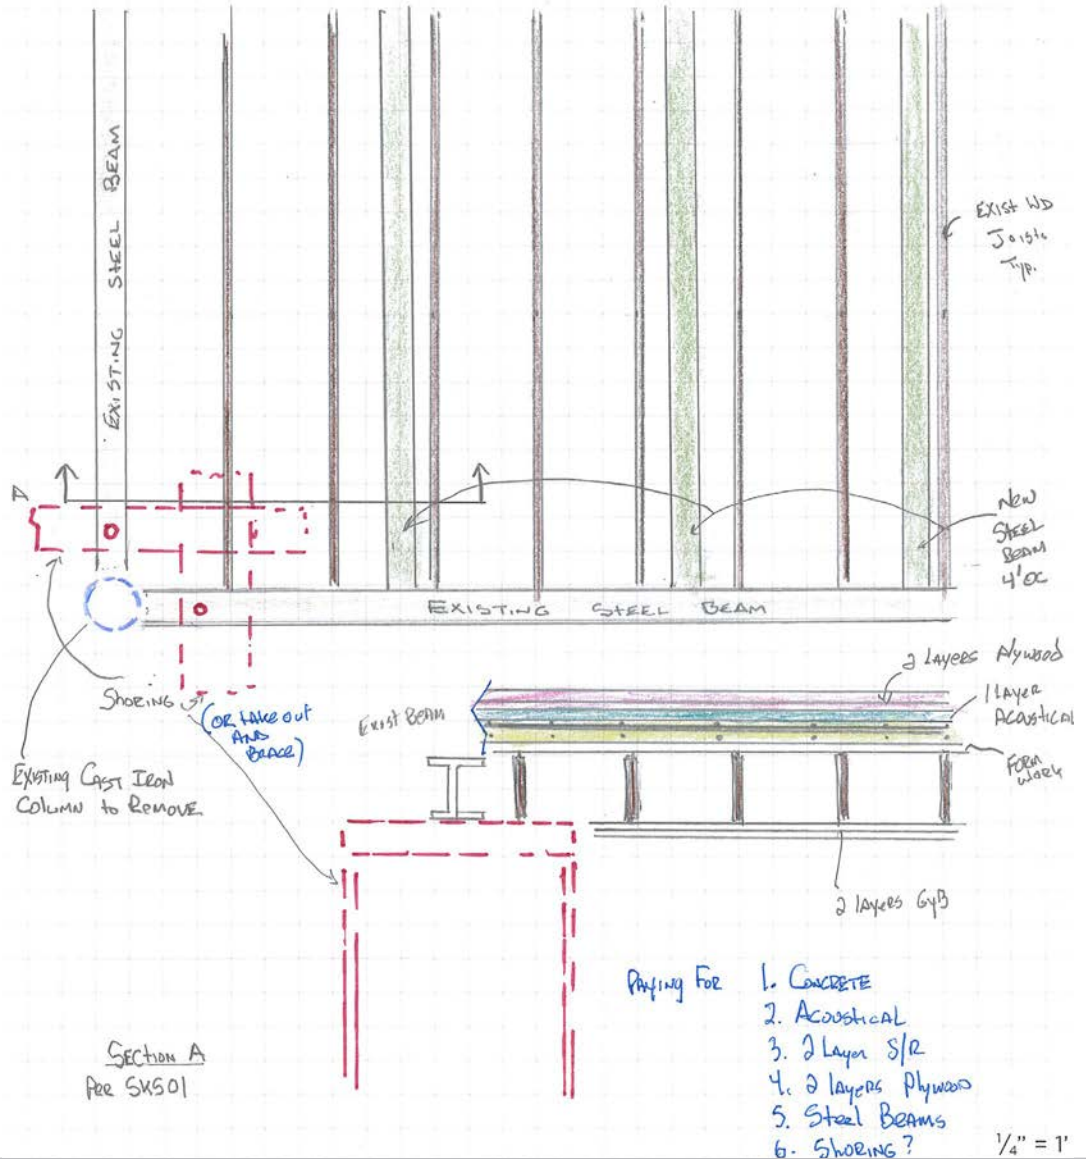 EXISTING STEEL BEAM
EXIST WD
Joists
Typ.
A
NEW
STEEL
BEAM
4' OC
EXISTING STEEL BEAM
SHORING
(OR TAKE OUT
AND
BRACE)
EXISTING CAST IRON
COLUMN to REMOVE
EXIST BEAM
2 LAYERS Plywood
1 LAYER
ACOUSTICAL
FORM
WORK
2 LAYERS GYB
SECTION A
PER SK501
PAYING FOR 1. CONCRETE
2. ACOUSTICAL
3. 2 LAYER S/R
4. 2 LAYERS Plywood
5. Steel BEAMS
6. SHORING?
1/4" = 1'